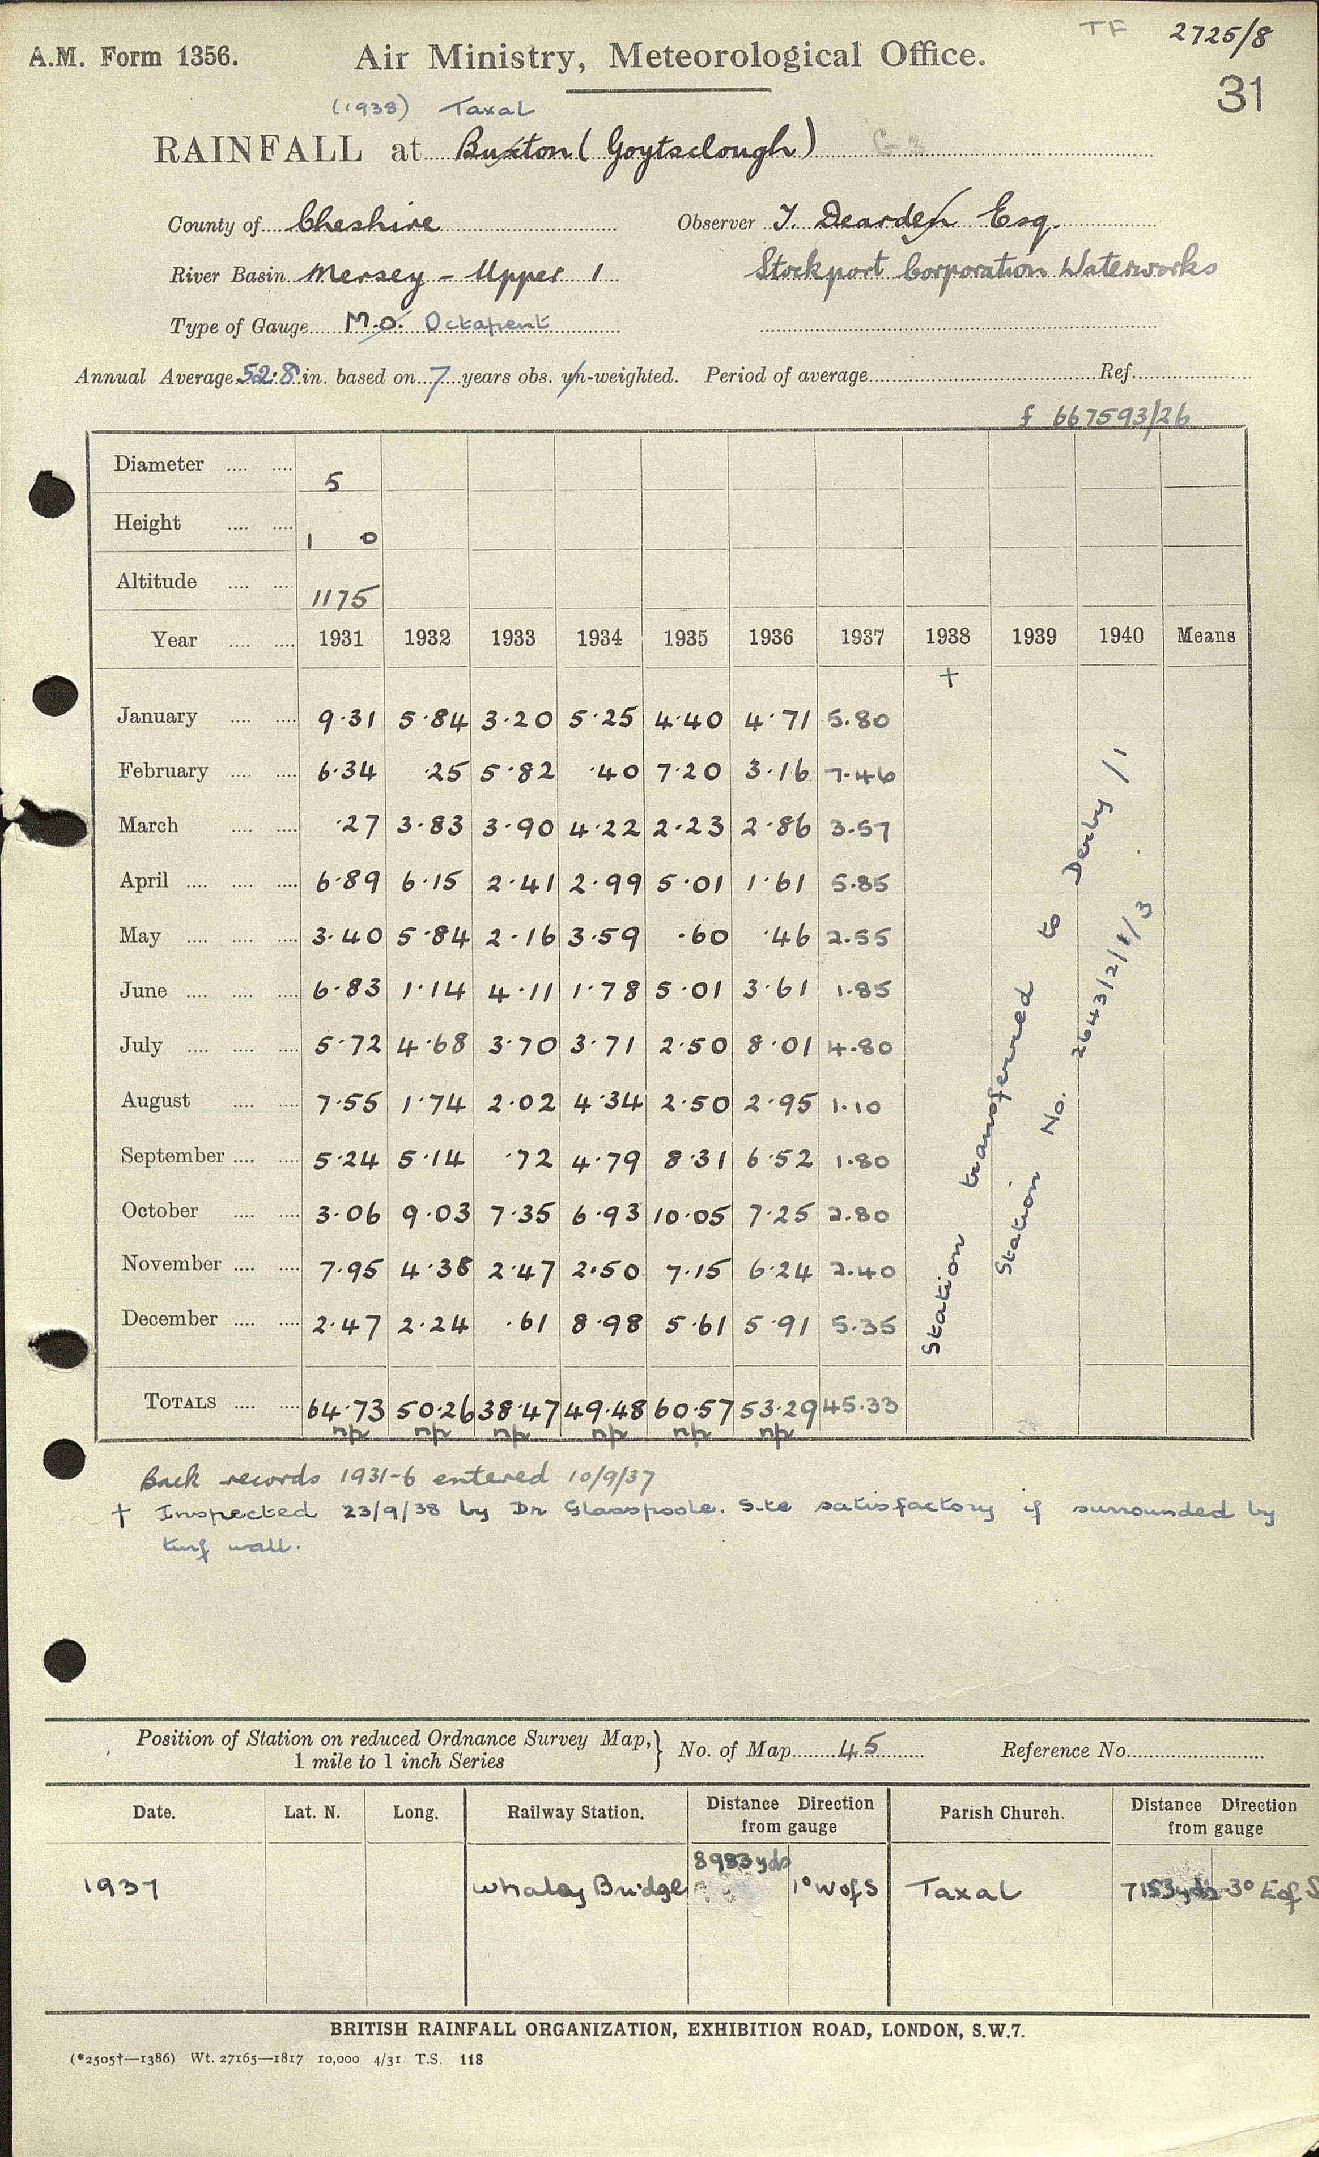 TF 2725/8
A.M. Form 1356. Air Ministry, Meteorological Office. 31
(1938) Taxal
RAINFALL at Buxton (Goytsclough)
County of Cheshire Observer J. Dearden Esq.
River Basin Mersey - Upper 1 Stockport Corporation Waterworks
Type of Gauge M.O. Octapent
Annual Average 52.8 in. based on 7 years obs. un-weighted. Period of average Ref.
f 667593/26
Diameter 5
Height 1 0
Altitude 1175
Year 1931 1932 1933 1934 1935 1936 1937 1938 1939 1940 Means
+
January 9.31 5.84 3.20 5.25 4.40 4.71 5.80
February 6.34 .25 5.82 .40 7.20 3.16 7.46
March .27 3.83 3.90 4.22 2.23 2.86 3.57
April 6.89 6.15 2.41 2.99 5.01 1.61 5.85
May 3.40 5.84 2.16 3.59 .60 .46 2.55
June 6.83 1.14 4.11 1.78 5.01 3.61 1.85
July 5.72 4.68 3.70 3.71 2.50 8.01 4.80
August 7.55 1.74 2.02 4.34 2.50 2.95 1.10
September 5.24 5.14 .72 4.79 8.31 6.52 1.80
October 3.06 9.03 7.35 6.93 10.05 7.25 2.80
November 7.95 4.38 2.47 2.50 7.15 6.24 2.40
December 2.47 2.24 .61 8.98 5.61 5.91 5.35
Station transferred to Derby /1
Station No. 2643/2/1/3
TOTALS 64.73 50.26 38.47 49.48 60.57 53.29 45.33
np np np np np np
Back records 1931-6 entered 10/9/37
† Inspected 23/9/38 by Dr Glasspoole. Site satisfactory if surrounded by
turf wall.
Position of Station on reduced Ordnance Survey Map, 1 mile to 1 inch Series } No. of Map 45 Reference No.
Date. Lat. N. Long. Railway Station. Distance Direction from gauge Parish Church. Distance Direction from gauge
1937 Whaley Bridge 8983 yds 1° W of S Taxal 7153 yds 3° E of S
BRITISH RAINFALL ORGANIZATION, EXHIBITION ROAD, LONDON, S.W.7.
(*2505†—1386) Wt. 27165—1817 10,000 4/31 T.S. 118